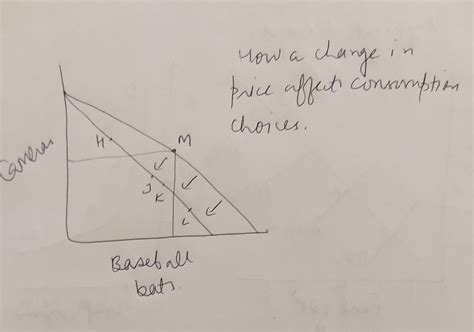 How a change in
price affects consumption
choices.
Cameras
H
M
J
K
L
Baseball
bats